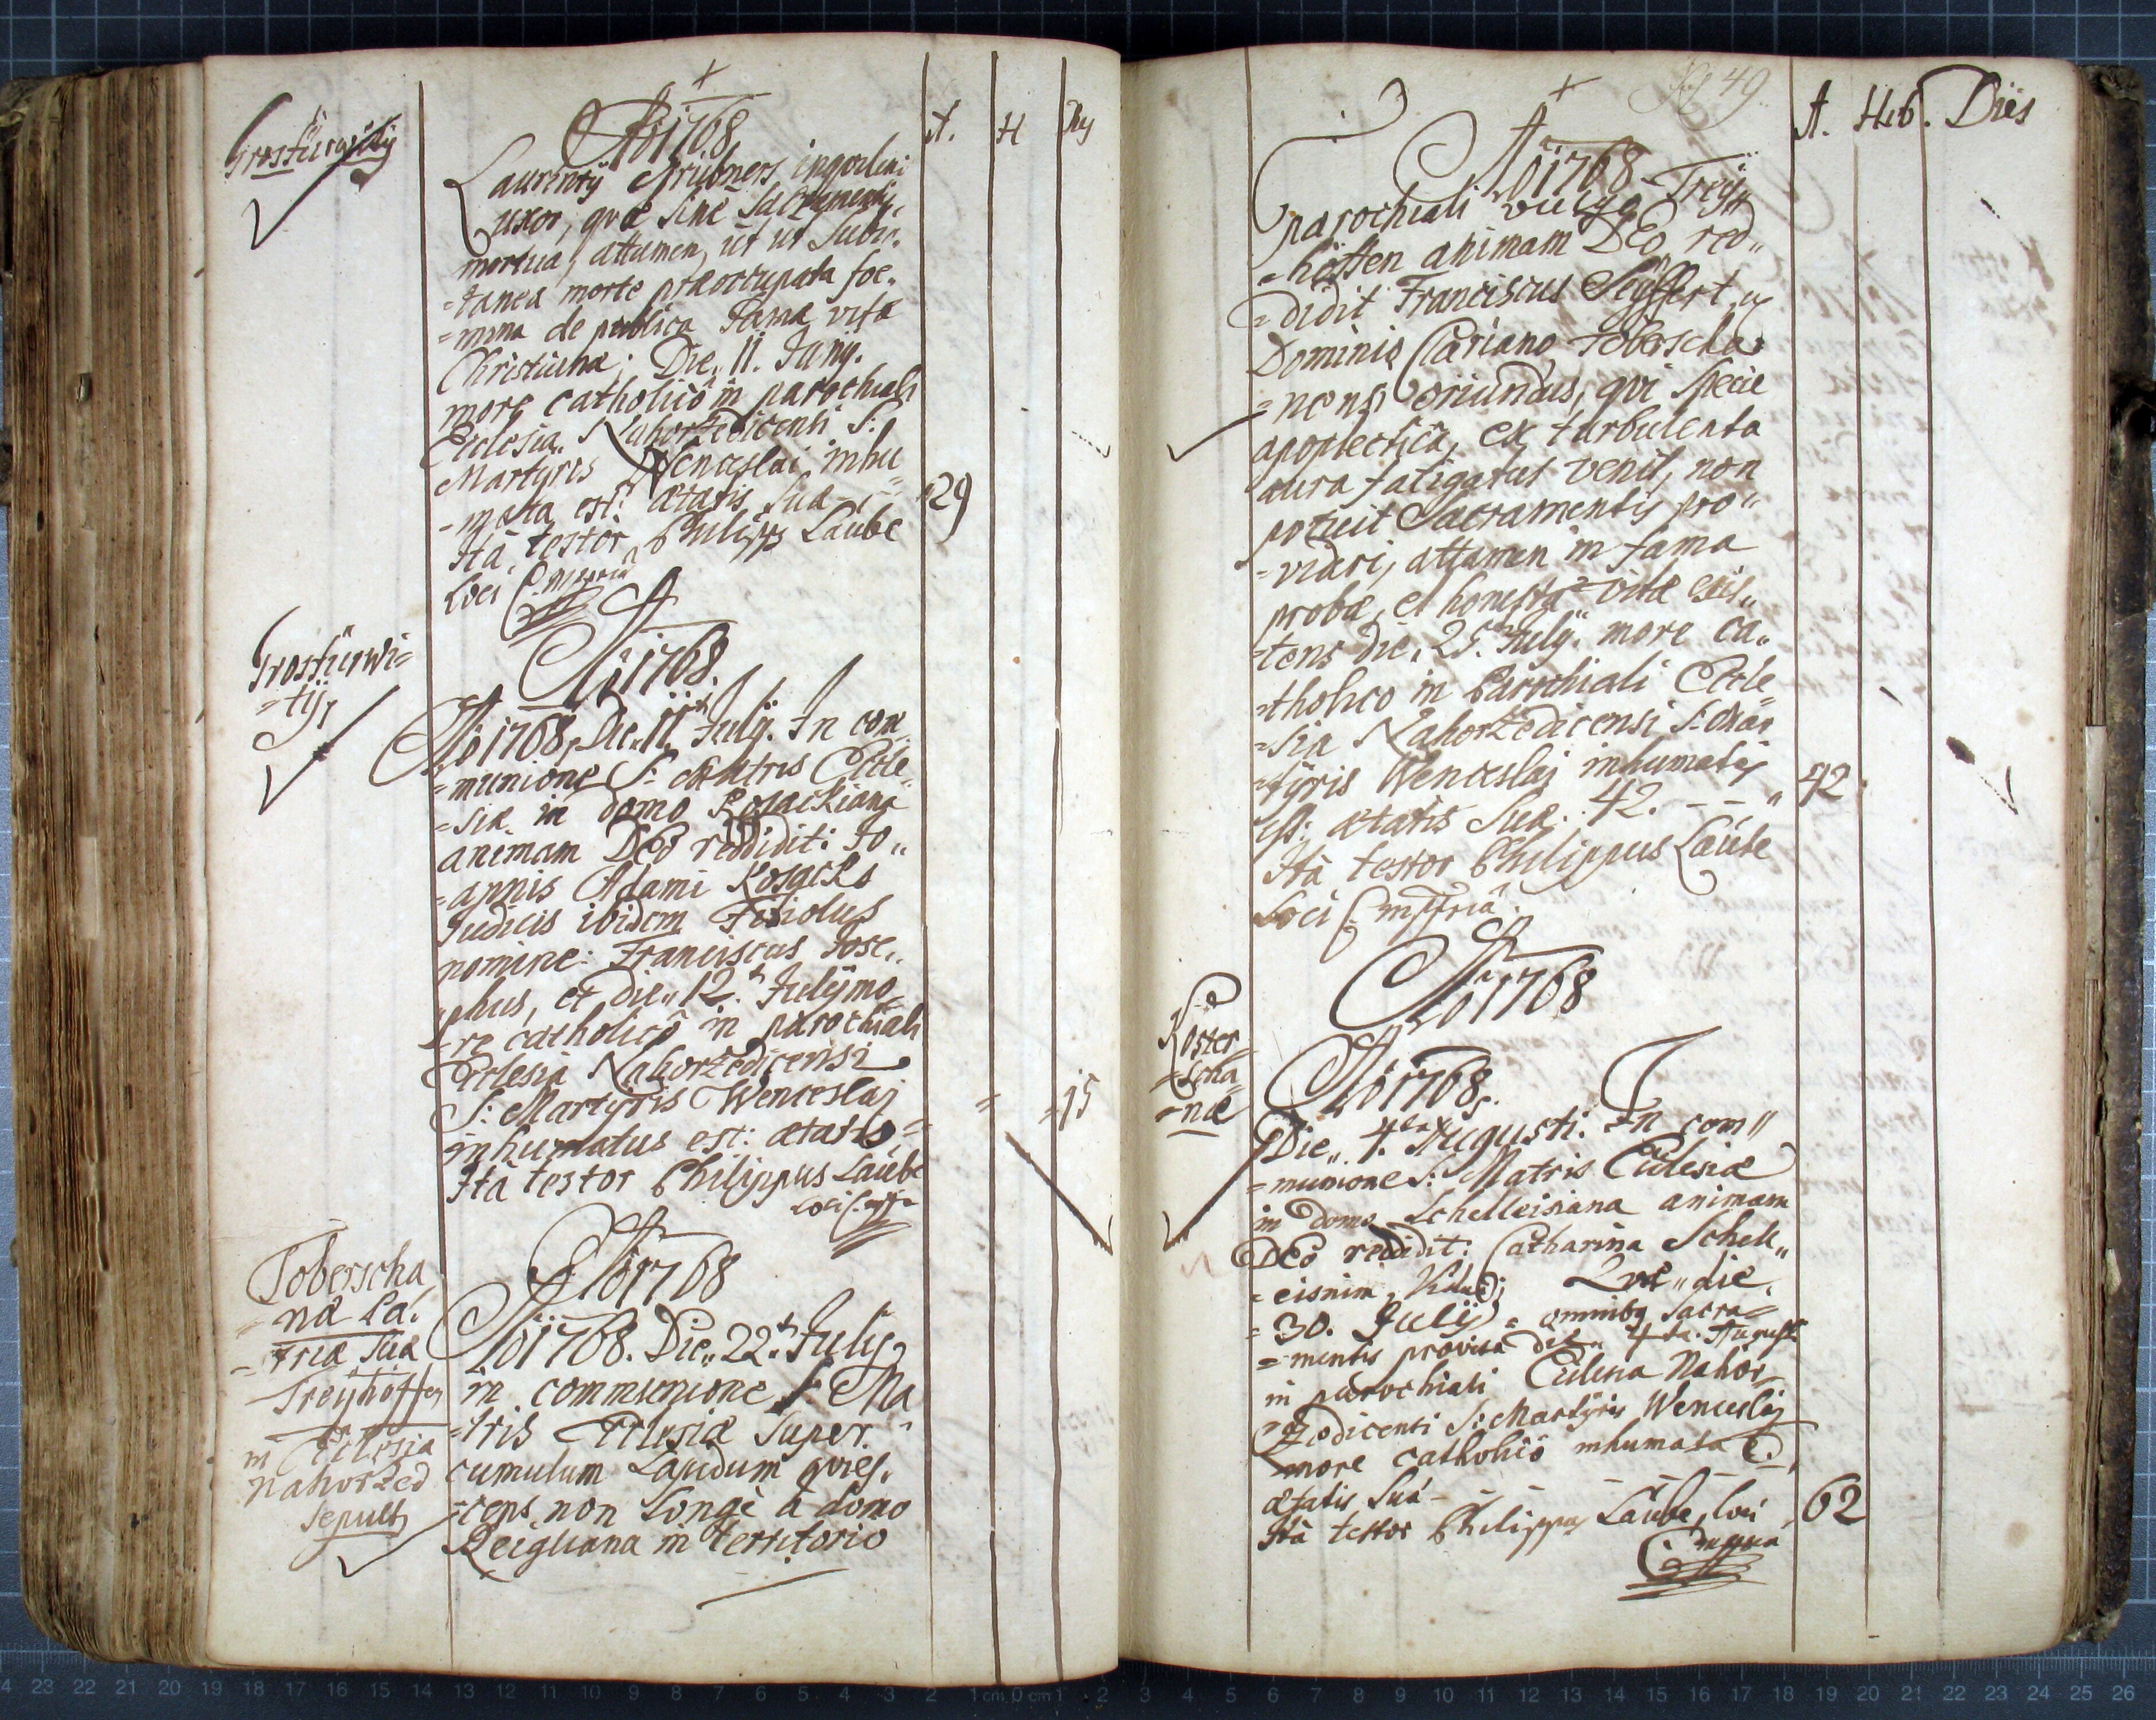 Aō 1768
A. H Dies
Grosfürwitij
Laurintij Grübners inquilini
uxor, qvæ sine Sacramentis
mortua, attamen, ut ut subi-
=tanea morte præoccupata foe-
=mina de publica Fama vitæ
Christianæ; Die 11. Juny.
more catholicô in parochiali
Ecclesia Nahorzedicensi S:
Martyris Wenceslai inhu=
=mata est: ætatis Suæ - 29
Ità testor Philipps Laube
Loci C. mppria
Aō 1768.
Grosfürwi=
=tij,
Aō 1768, Die 11. July. In com
=munione S: Matris Eccle=
=siæ in domo Kosackiana
animam DEo reddidit: Jo„
=annis Adami Kosacks
Judicis ibidem Filiolus
nomine: Franciscus Jose„
„phus, et die„ 12. July mo
=re catholicô in parochiali
Ecclesia Nahorzedicensi
S: Martyris Wenceslaj
inhumatus est: ætatis = = = 15
Ità testor Philippus Laube
Loci C. mpp
Aō 1768
Toberscha
=næ Pa.
=triæ suæ
Treyhöffen
in Ecclesia
Nahorzed
sepult9
Aō 1768. Die„ 22. July
in communione S: Ma
=tris Ecclesiæ super.
cumulum Lapidum qvies.
=cens non Longè à domo
Reigliana in territorio
Fol 49.
A. Heb. Dies
Aō 1768
parochiali vulgo Treÿ„
=höffen animam DEo red„
=didit Franciscus Seÿffert, ex
Dominio Clariano Toberscha=
=nensi oriundus, qvi specie
apoplectica, ex turbulenta
aura fatigatus venit, non
potuit Sacramentis pro„
=videri, attamen in fama
probæ, et honestæ vitæ exis„
=tens die, 25. July. more ca„
=tholico in Parochiali Eccle=
=sia Nahorzedicensi S: Mar
=tyris Wenceslaj inhumat9
est: ætatis Suæ. 42. - - „ 42
Ità testor Philippus Laube
Loci C. mppriâ.
Aō 1768
Koster=
=scha=
=næ
Aō 1768.
Die„ 4. Augusti. In com„
=munione S: Matris Ecclesiæ
in domo Schelleisiana animam
DEo reddidit: Catharina Schell„
=eisnin, Vidua; Qvæ„ die.
=30. Julij = omnibq Sacra=
=mentis provisa 4ta. Augusti
in parochiali Ecclesia Nahor„
=zedicensi S: Martÿris Wenceslaj
more catholicô inhumata e.
ætatis Suæ - - - - - 62
Ità testor Philippus Laube, loci
C. mppria